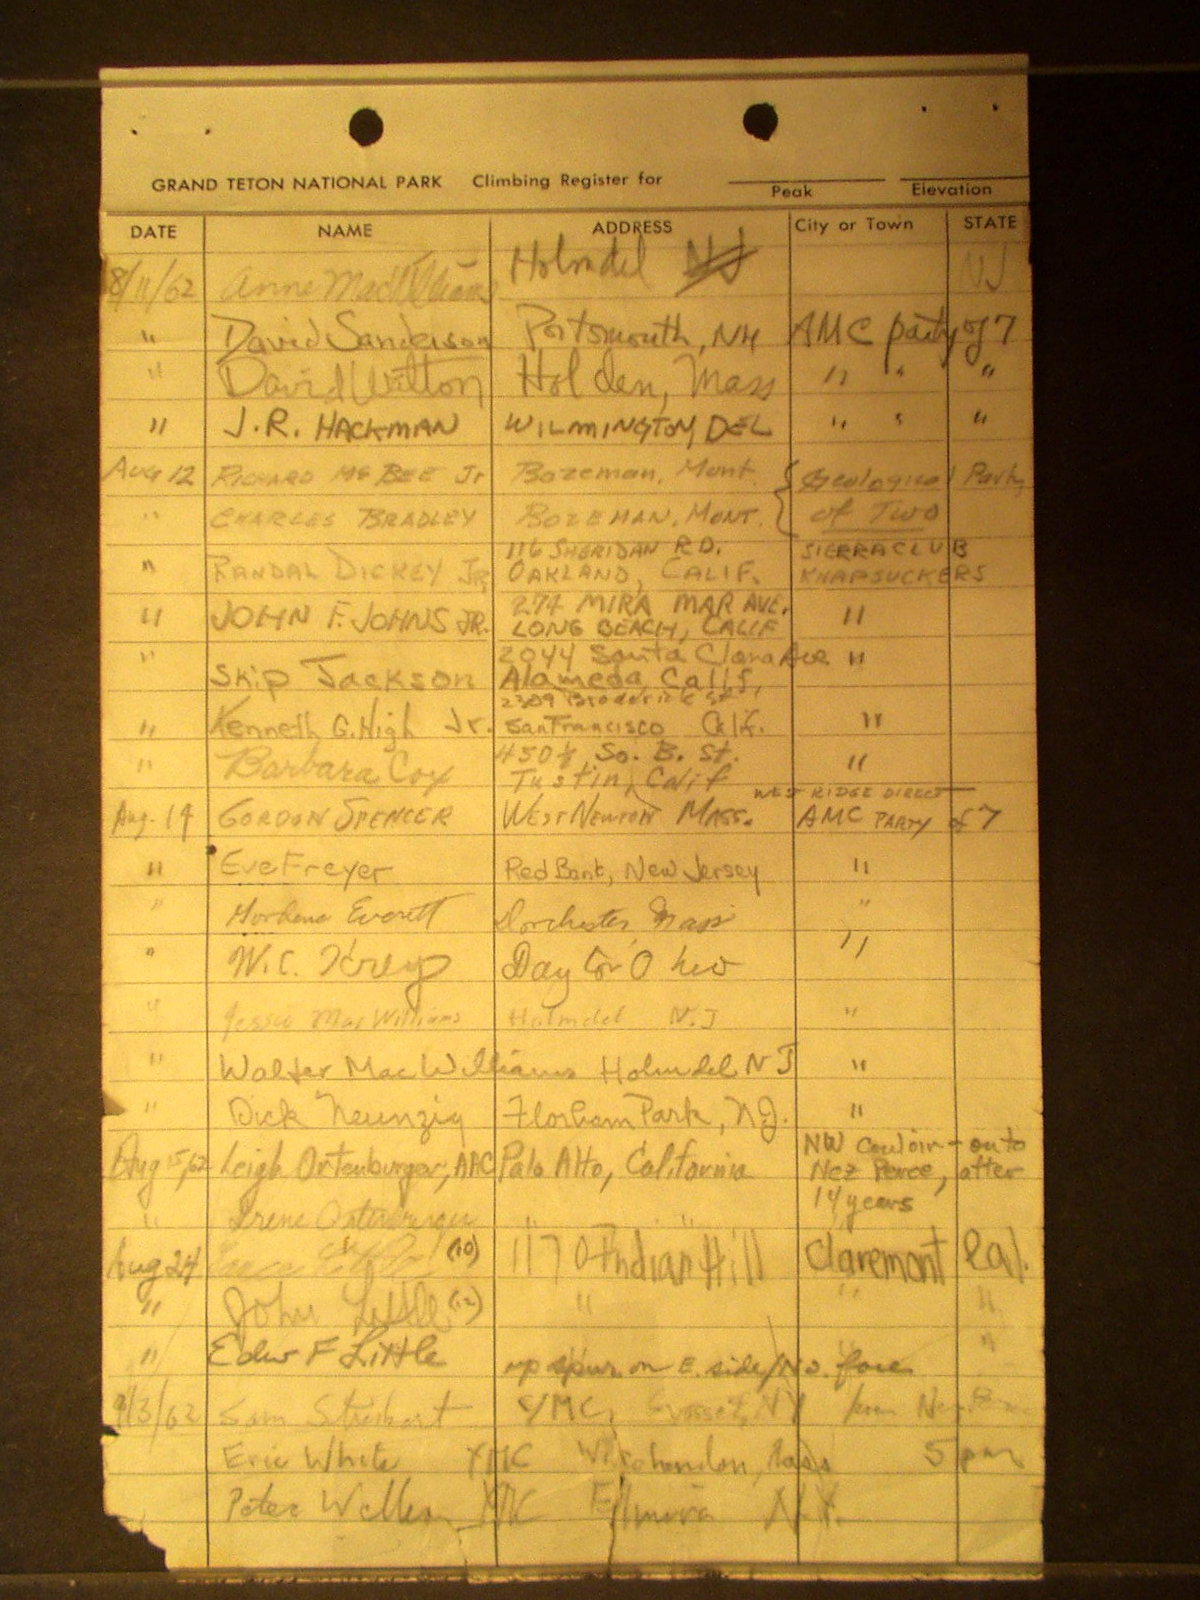 GRAND TETON NATIONAL PARK Climbing Register for
Peak Elevation
DATE NAME ADDRESS City or Town STATE
8/11/62 Anne MacWilliams Holmdel NJ NJ
" David Sanderson Portsmouth, NH AMC party of 7
" David Wilton Holden, Mass " " "
" J.R. HACKMAN WILMINGTON, DEL " " "
Aug 12 RICHARD McBEE Jr Bozeman, Mont. Geological Party
" CHARLES BRADLEY BOZEMAN, MONT. of Two
116 SHERIDAN RD. SIERRA CLUB
" RANDAL DICKEY JR, OAKLAND, CALIF. KNAPSUCKERS
274 MIRA MAR AVE.
" JOHN F. JOHNS JR. LONG BEACH, CALIF "
" 2044 Santa Clara Ave "
Skip Jackson Alameda, Calif,
2309 Broderick St
" Kenneth G. High Jr. San Francisco Calif. "
450½ So. B. St.
" Barbara Cox Tustin, Calif "
WEST RIDGE DIRECT
Aug. 14 GORDON SPENCER WEST NEWTON MASS. AMC PARTY of 7
" Eve Freyer Red Bank, New Jersey "
" Everett Dorchester Mass "
" W.C. Dayton Ohio "
" Jessie MacWilliams Holmdel N.J "
" Walter MacWilliams Holmdel NJ "
" Dick Neunzig Florham Park, NJ. "
NW Couloir - onto
Aug 15, 62 Leigh Ortenburger, AAC Palo Alto, California Nez Perce, after
14 years
" Irene Ortenburger " "
Aug 24 (10) 1170 Indian Hill Claremont Cal.
" John Little (12) " " "
" Edw F Little " "
up spur on E. side/No. face
9/3/62 Sam YMC, NY from
Eric White YMC Winchendon, Mass 5 pm
Peter YMC Elmira N.Y.